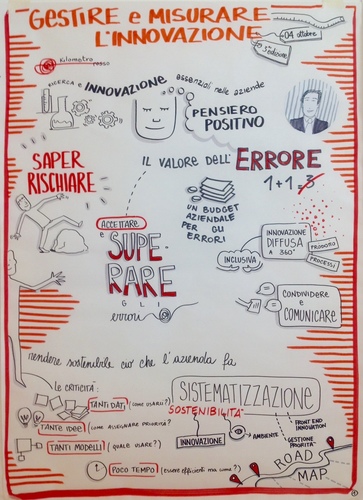 GESTIRE e MISURARE
L'INNOVAZIONE
04 ottobre
Kilometro
rosso
RICERCA e INNOVAZIONE essenziali nelle aziende
PENSIERO
POSITIVO
SAPER
RISCHIARE
IL VALORE DELL' ERRORE
1+1=3
UN BUDGET
AZIENDALE
PER GLI
ERRORI
ACCETTARE
e SUPE-
RARE
GLI
errori
INNOVAZIONE
DIFFUSA
A 360°
INCLUSIVA
PRODOTTO
PROCESSI
CONDIVIDERE
e
COMUNICARE
rendere sostenibile ciò che l'azienda fa
le criticità:
TANTI DATI (COME USARLI?)
TANTE IDEE (COME ASSEGNARE PRIORITÀ?)
TANTI MODELLI (QUALE USARE?)
POCO TEMPO (essere efficienti ma come?)
SISTEMATIZZAZIONE
SOSTENIBILITÀ
INNOVAZIONE
AMBIENTE
FRONT END
INNOVATION
GESTIONE
PRIORITÀ
ROAD
MAP